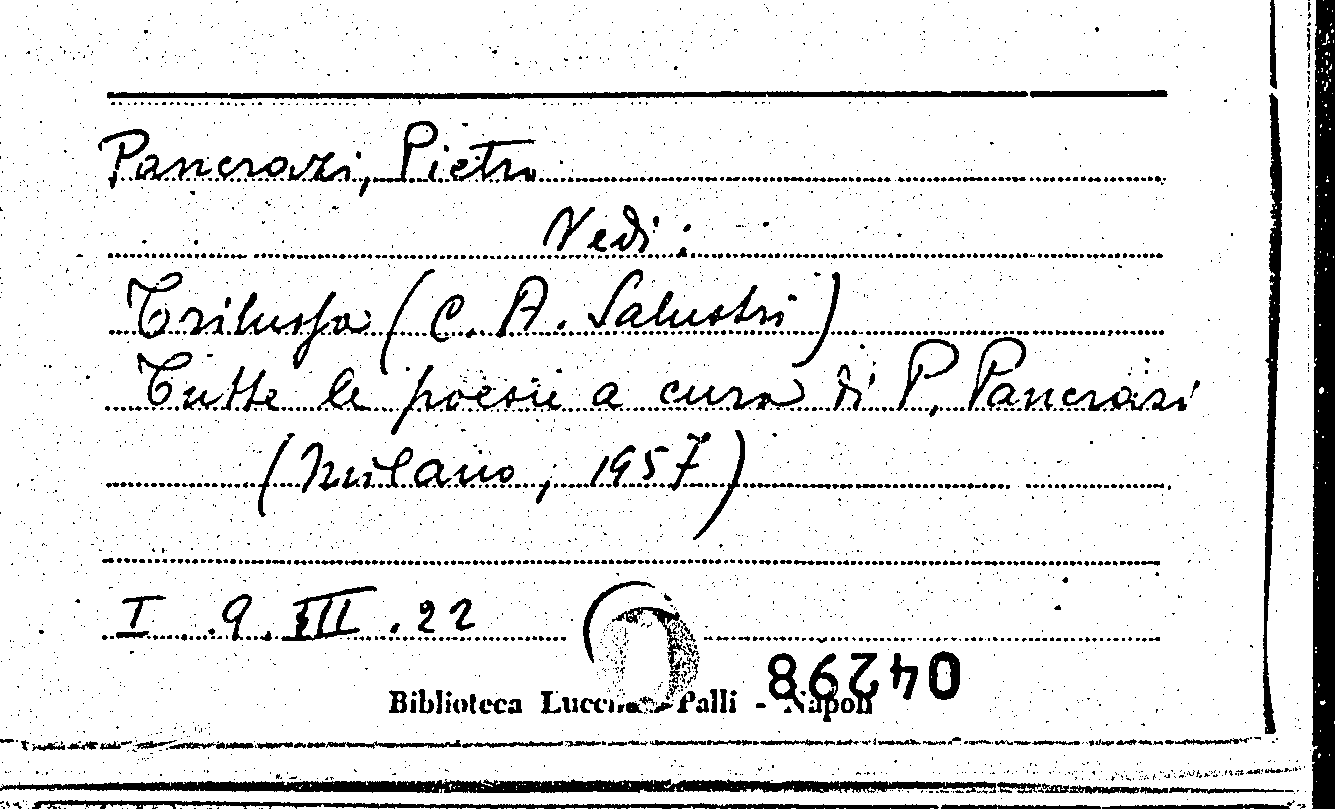 Pancrazi, Pietro
Vedi:
Trilussa (C. A. Salustri)
Tutte le poesie a cura di P. Pancrazi
(Milano, 1957)
I .9. III .22
04298
Biblioteca Lucchesi Palli - Napoli